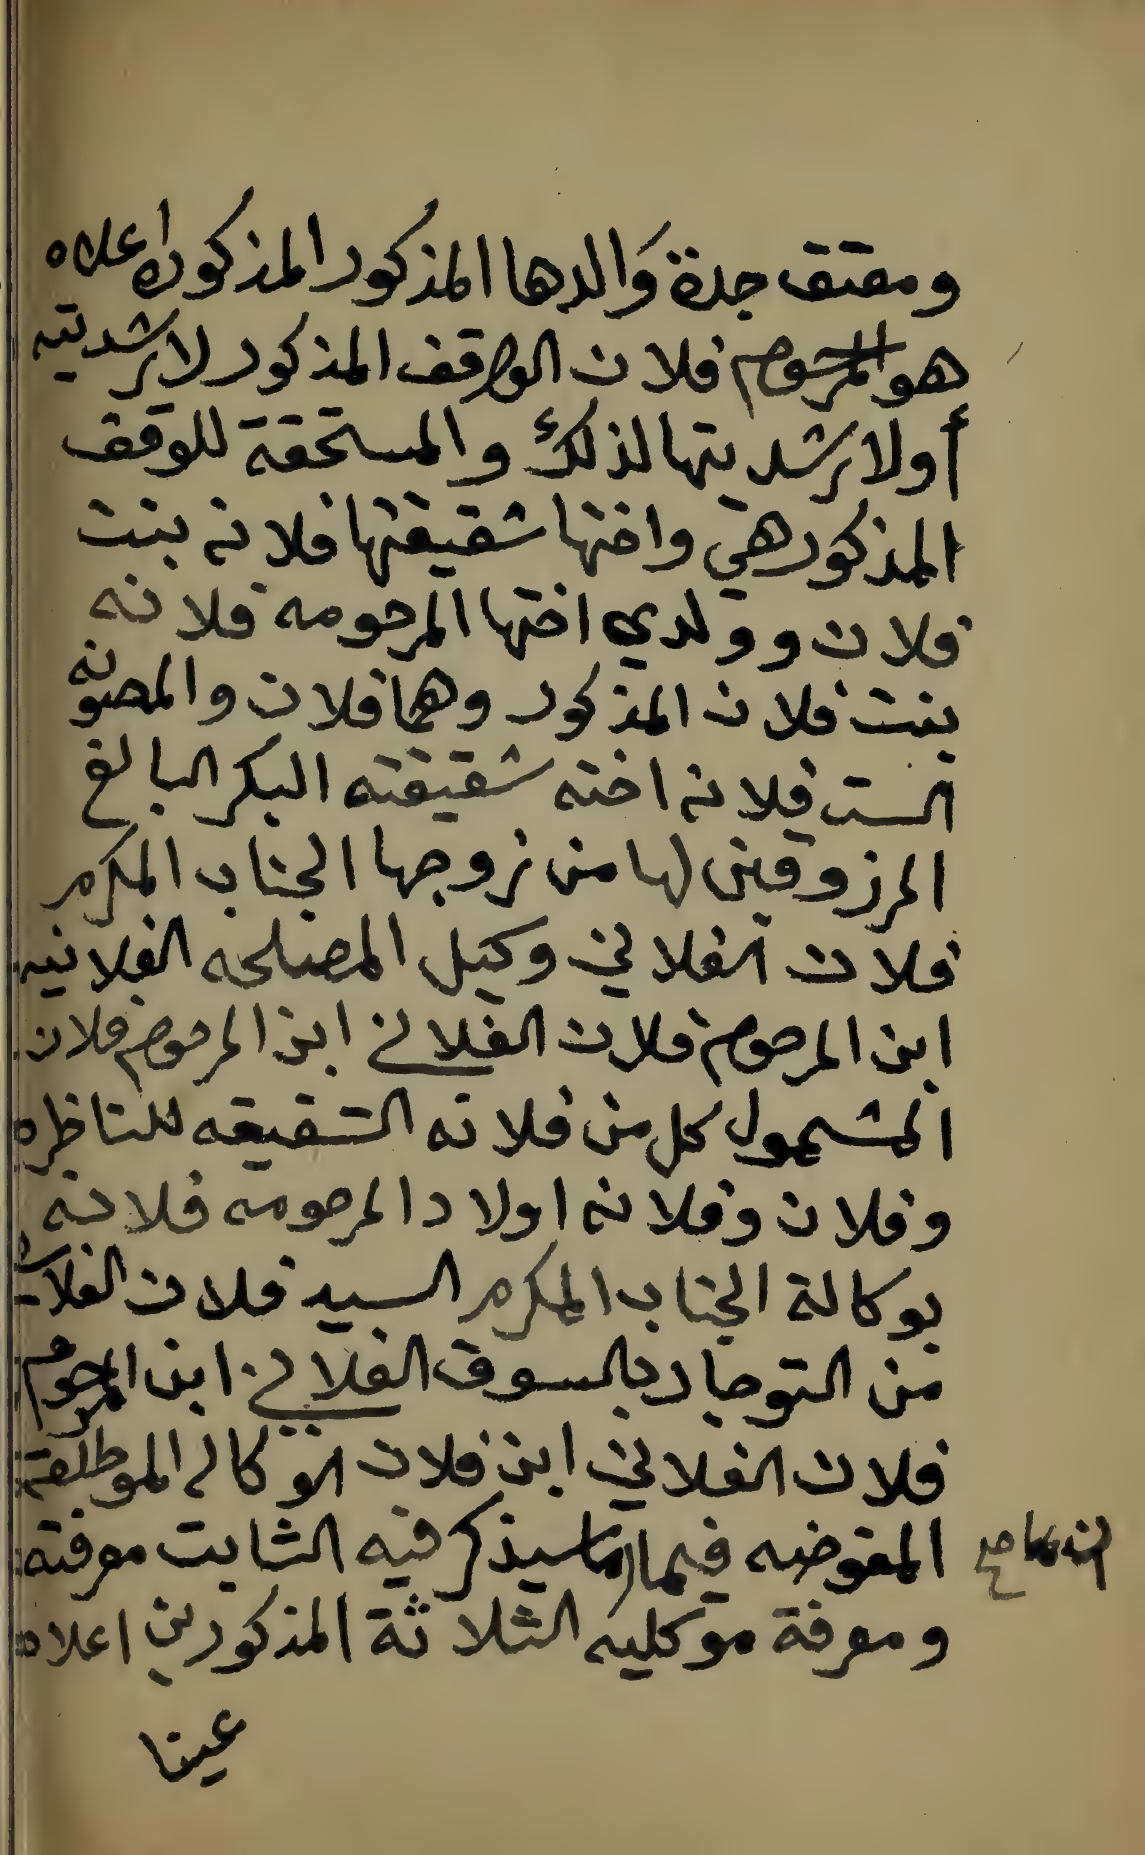 ومعتق جدة والدها المذكور المذكوره اعلاه
هو المرحوم فلان الواقف المذكور لارشديته
أو لارشديتها لذلك والمستحقة للوقف
المذكور هي واختها شقيقتها فلانه بنت
فلان وولدي اختها المرحومه فلانه
بنت فلان المذكور وهما فلان والمصونه
الست فلانه اخته شقيقته البكر البالغ
المرزوقين لها من زوجها الجناب المكرم
فلان الفلاني وكيل المصلحه الفلانيه
ابن المرحوم فلان الفلاني ابن المرحوم فلان
المشمول كل من فلانه الشقيقه للناظره
وفلان وفلانه اولاد المرحومه فلانه
بوكالة الجناب المكرم السيد فلان الفلاني
من التوجار بالسوق الفلاني ابن المرحوم
فلان الفلاني ابن فلان الوكاله الموطلقة
المفوضه فيما سيذكر فيه الثابت معرفته
ومعرفة موكليه الثلاثة المذكورين اعلاه
عينا